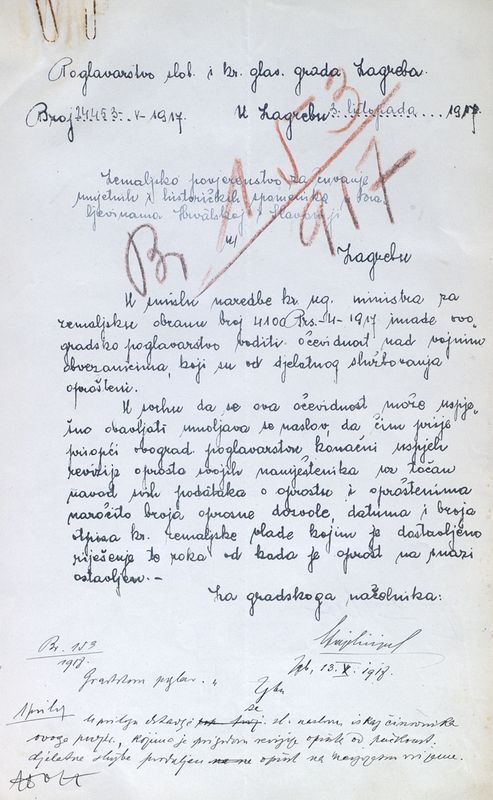 Poglavarstvo slob. i kr. glav. grada Zagreba.
Broj 24453-V-1917. U Zagrebu 3. listopada 1917.
Zemaljsko povjerenstvo za čuvanje
umjetnih i historičkih spomenika u kra-
ljevinama Hrvatskoj i Slavoniji
u
Zagrebu
Br. 153
917
U smislu naredbe kr. ug. ministra za
zemaljsku obranu broj 4100 Prs.-4-1917 imade ovo
gradsko poglavarstvo voditi očevidnost nad vojnim
obvezanicima, koji su od djelatnog službovanja
oprošteni.
U svrhu da se ova očevidnost može uspje-
šno obavljati umoljava se naslov, da čim prije
priopći ovograd. poglavarstvu konačni uspjeh
revizije oprosta svojih namještenika uz točan
navod svih podataka o oprostu i oproštenima
naročito broja oprosne dozvole, datuma i broja
otpisa kr. zemaljske vlade kojim je dostavljeno
riješenje te roka od kada je oprost na snazi
ostavljen.-
Za gradskoga načelnika:
Br. 153
1917.
Zgb, 13. X. 1917.
Gradskom poglav. u Zgbu
1 prilog
U prilogu dostavlja se sl. naslovu iskaz činovnika
ovoga
djelatne službe produljen oprost na